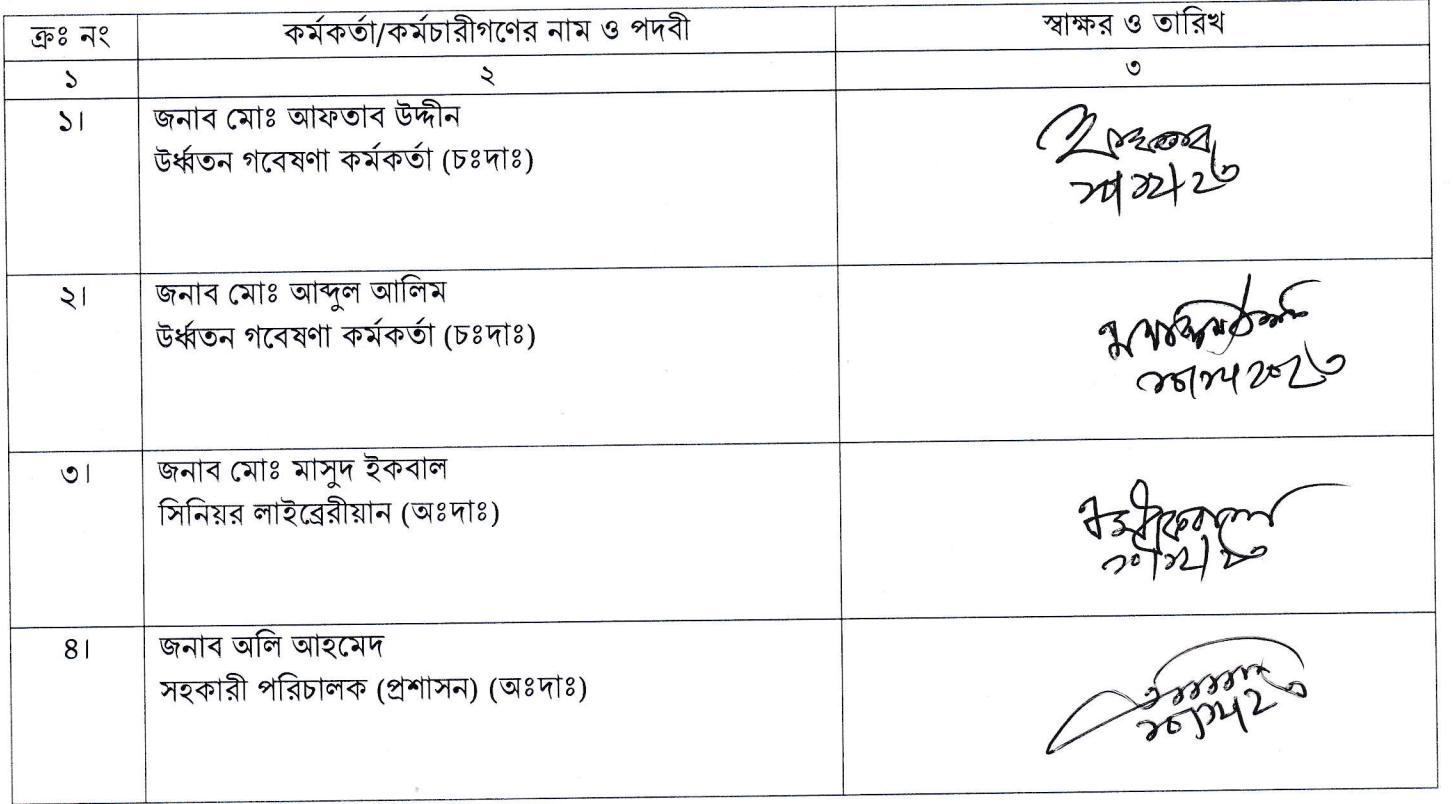 ক্রঃ নং কর্মকর্তা/কর্মচারীগণের নাম ও পদবী স্বাক্ষর ও তারিখ
১ ২ ৩
১। জনাব মোঃ আফতাব উদ্দীন
উর্ধ্বতন গবেষণা কর্মকর্তা (চঃদাঃ)
২। জনাব মোঃ আব্দুল আলিম
উর্ধ্বতন গবেষণা কর্মকর্তা (চঃদাঃ)
৩। জনাব মোঃ মাসুদ ইকবাল
সিনিয়র লাইব্রেরীয়ান (অঃদাঃ)
৪। জনাব অলি আহমেদ
সহকারী পরিচালক (প্রশাসন) (অঃদাঃ)